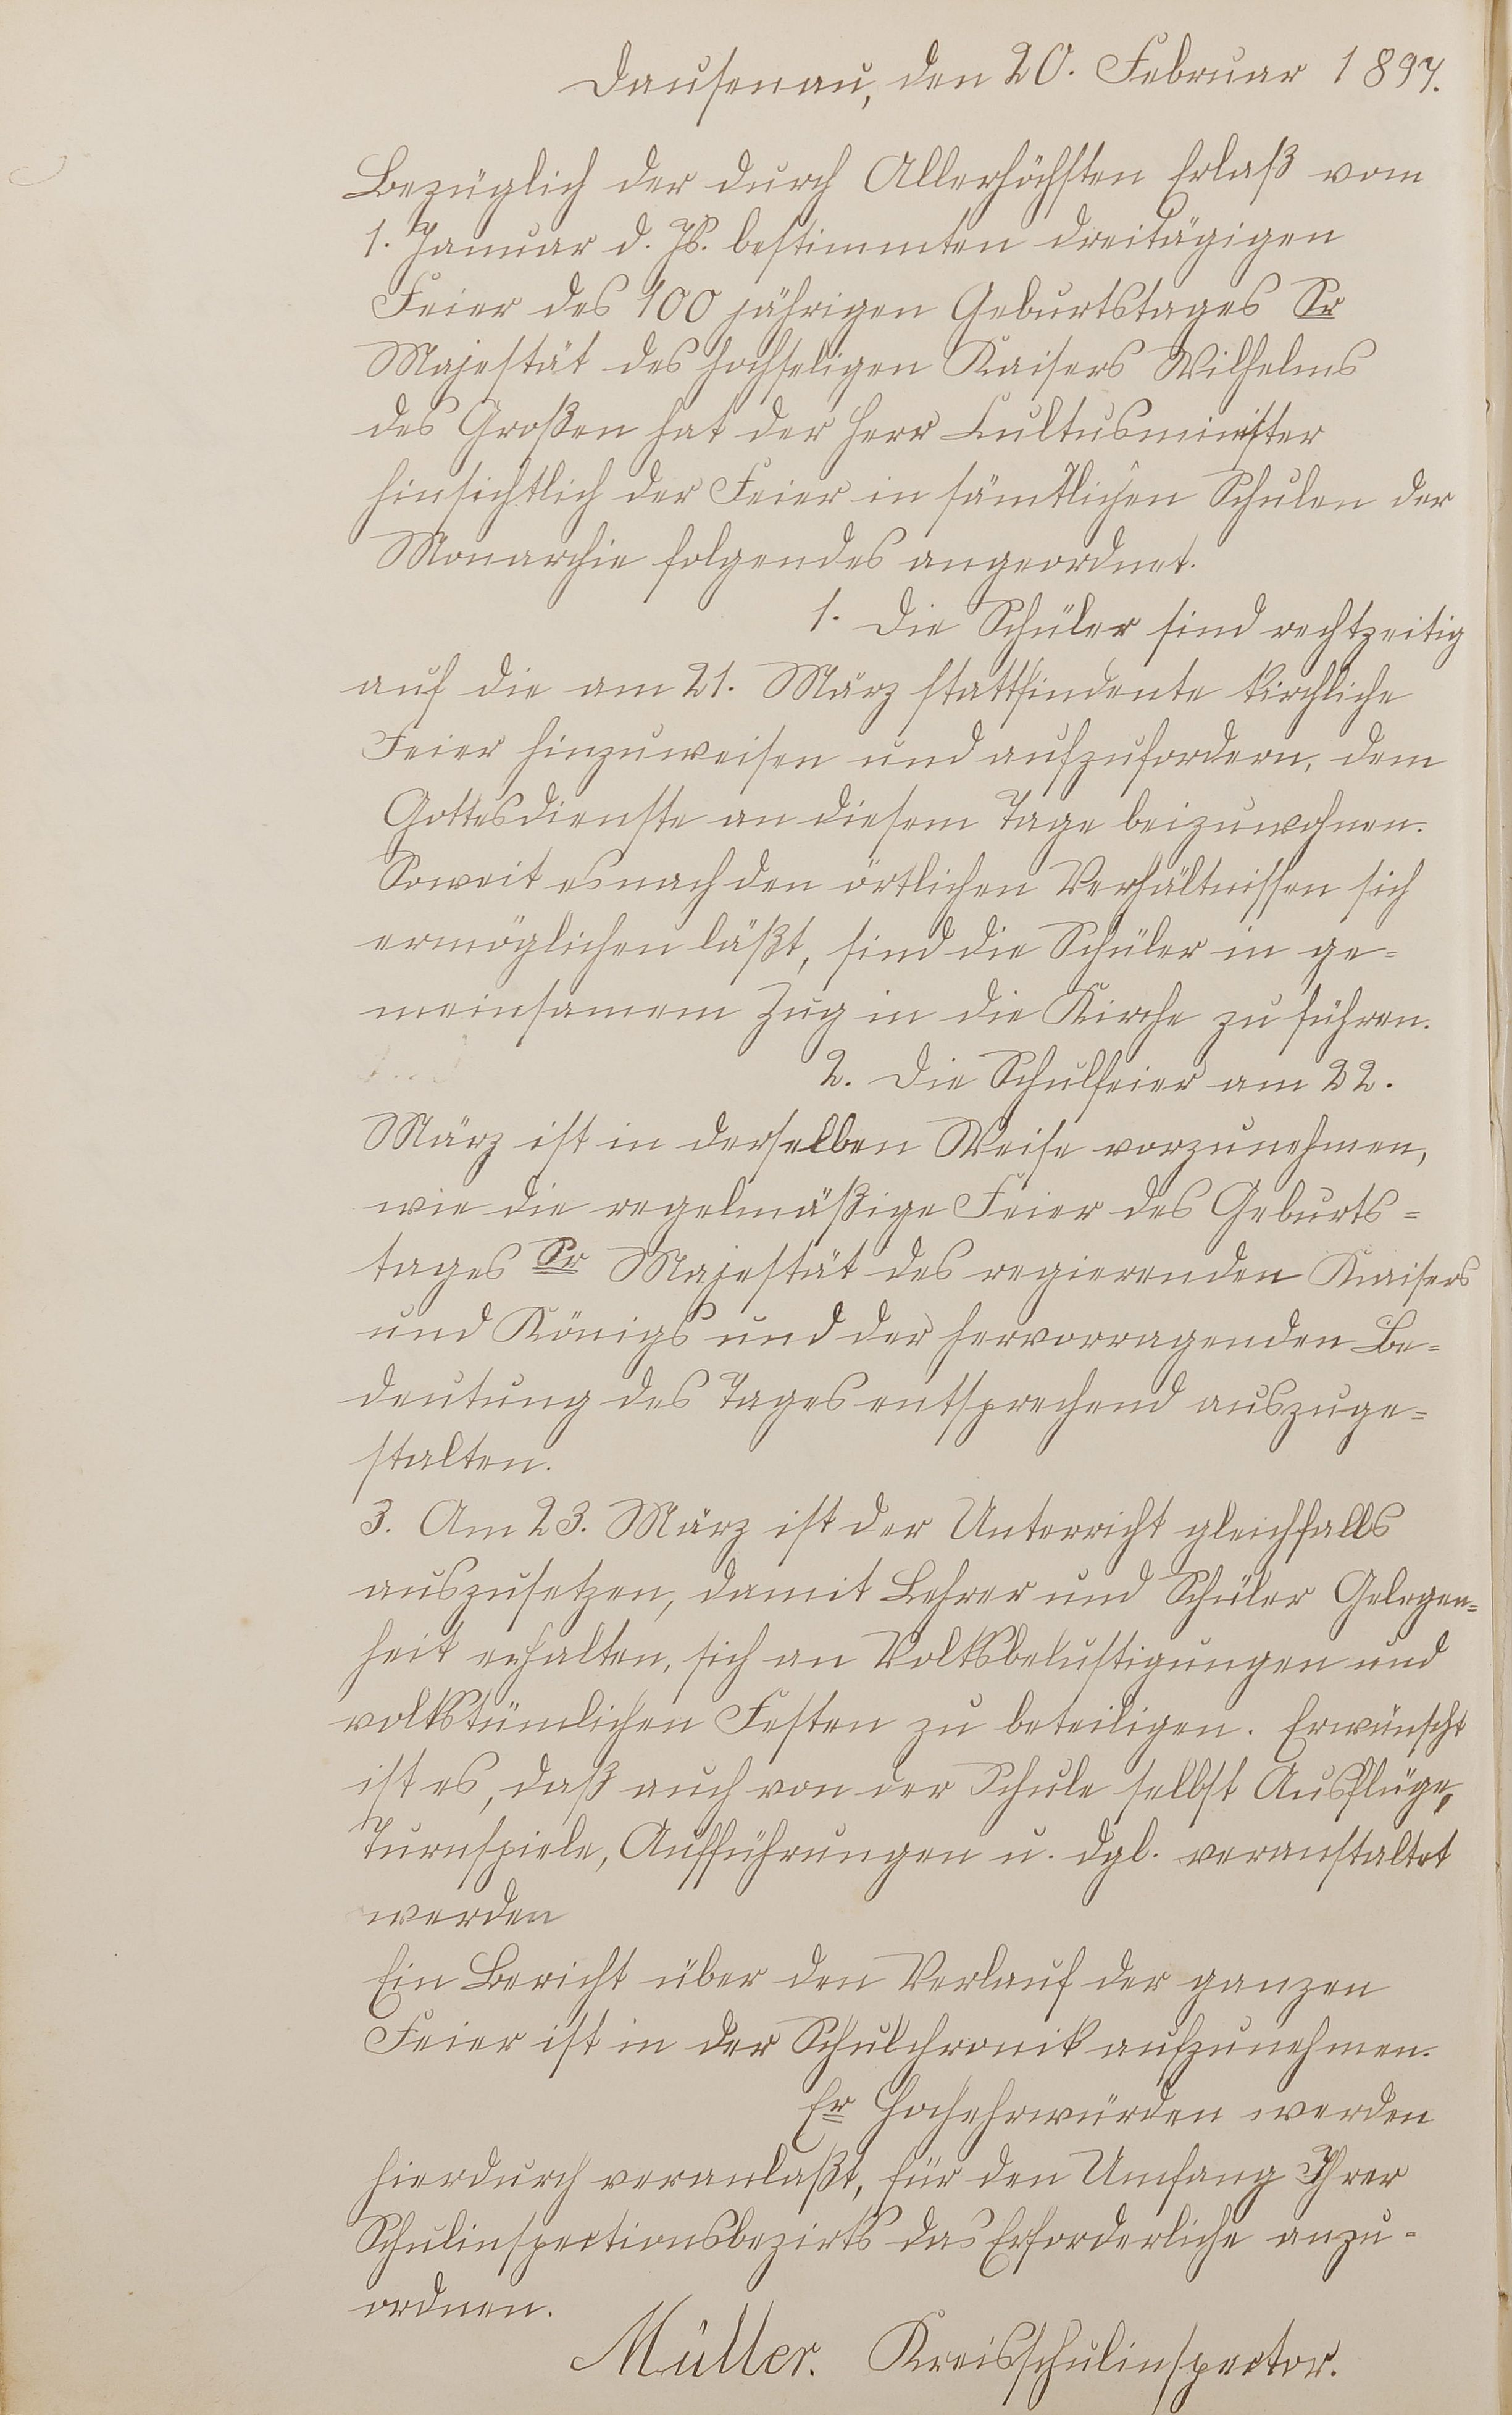 Dausenau, den 20. Februar 1897.
Bezüglich der durch Allerhöchsten Erlaß vom
1. Januar d. Js. bestimmten dreitägigen
Feier des 100 jährigen Geburtstages Sr
Majestät des hochseligen Kaisers Wilhelms
des Großen hat der Herr Cultusminister
hinsichtlich der Feier in sämtlichen Schulen der
Monarchie folgendes angeordnet.
1. Die Schüler sind rechtzeitig
auf die am 21. März stattfindente kirchliche
Feier hinzuweisen und aufzufordern, dem
Gottesdienste an diesem Tage beizuwohnen.
Soweit es nach den örtlichen Verhältnissen sich
ermöglichen läßt, sind die Schüler in ge=
meinsamem Zug in die Kirche zu führen.
2. Die Schulfeier am 22.
März ist in derselben Weise vorzunehmen,
wie die regelmäßige Feier des Geburts=
tages Sr Majestät des regierenden Kaisers
und Königs und der hervorragenden Be=
deutung des Tages entsprechend auszuge=
stalten.
3. Am 23. März ist der Unterricht gleichfalls
auszusetzen, damit Lehrer und Schüler Gelegen=
heit erhalten, sich an Volksbelustigungen und
volkstümlichen Festen zu beteiligen. Erwünscht
ist es, daß auch von der Schule selbst Ausflüge,
Turnspiele, Aufführungen u. dgl. veranstaltet
werden
Ein Bericht über den Verlauf der ganzen
Feier ist in der Schulchronik aufzunehmen.
Er Hochehrwürden werden
hierdurch veranlaßt, für den Umfang Ihrer
Schulinspectionsbezirks das Erforderliche anzu-
ordnen.
Müller. Kreisschulinspector.